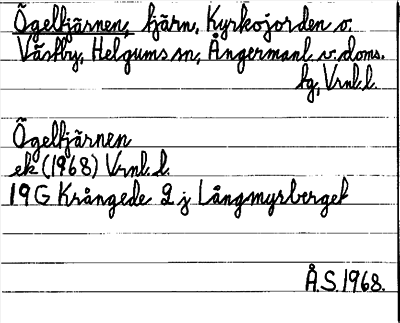 Ögeltjärnen, tjärn, Kyrkojorden o.
Västby, Helgums sn, Ångermanl. v. doms.
hg, Vrnl. l.
Ögeltjärnen
ek (1968) Vrnl. l.
19 G Krångede 2 j Långmyrberget
Å.S. 1968.